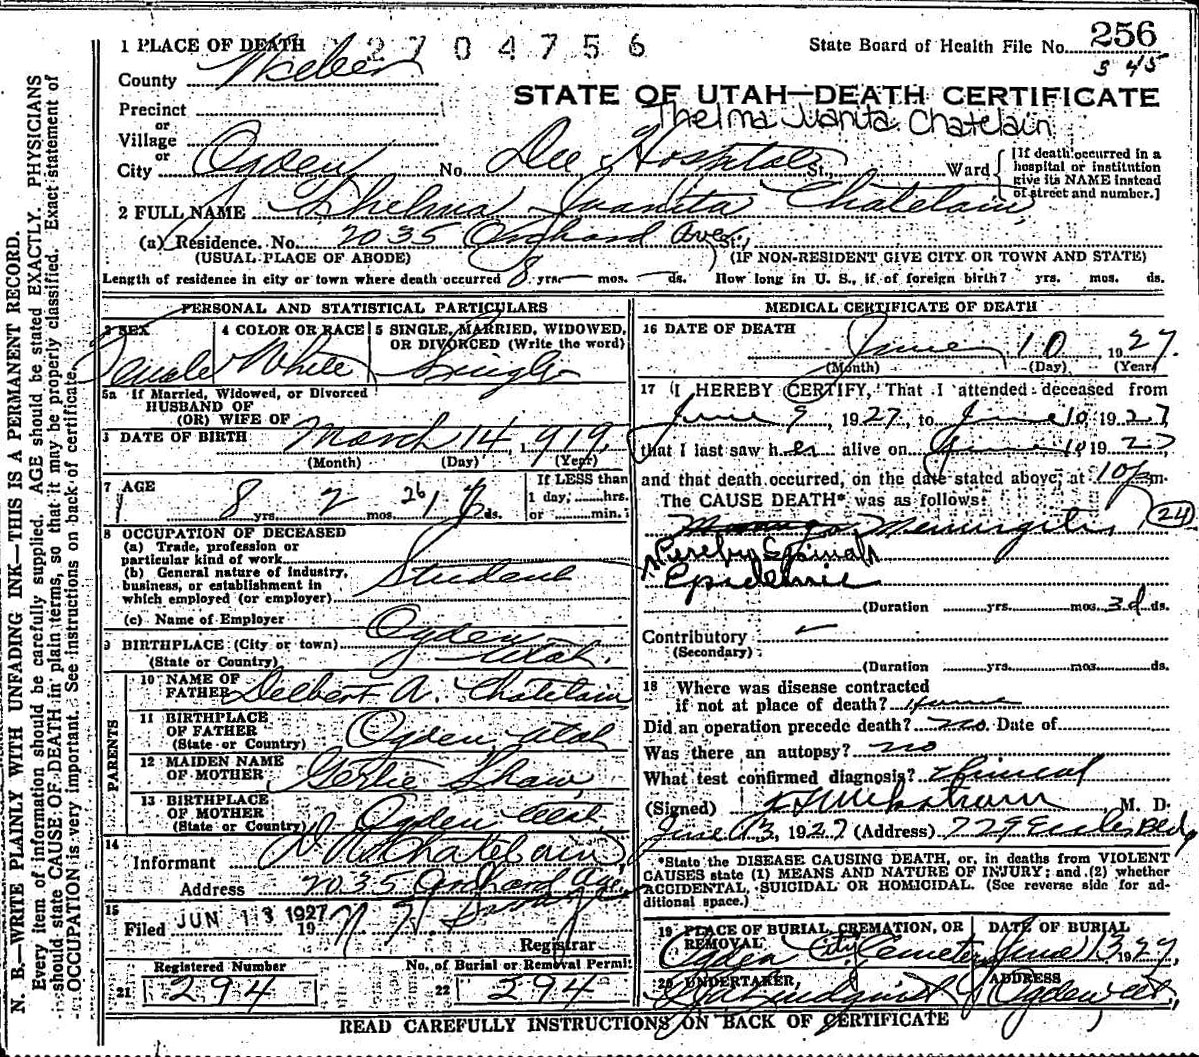 1 PLACE OF DEATH 2704756 State Board of Health File No. 256
County Weber 345
STATE OF UTAH—DEATH CERTIFICATE
Precinct
or
Thelma Juanita Chatelain
Village
or
City Ogden No. Dee Hospital St., Ward
[If death occurred in a hospital or institution give its NAME instead of street and number.]
2 FULL NAME Thelma Juanita Chatelain,
(a) Residence. No. 2035 Orchard Ave.,
(USUAL PLACE OF ABODE) (IF NON-RESIDENT GIVE CITY OR TOWN AND STATE)
Length of residence in city or town where death occurred 8 yrs. — mos. — ds. How long in U. S., if of foreign birth? yrs. mos. ds.
PERSONAL AND STATISTICAL PARTICULARS
3 SEX 4 COLOR OR RACE 5 SINGLE, MARRIED, WIDOWED,
OR DIVORCED (Write the word)
Female White Single
5a If Married, Widowed, or Divorced
HUSBAND OF
(OR) WIFE OF
DATE OF BIRTH March 14, 1919,
(Month) (Day) (Year)
7 AGE 8 yrs. 2 mos. 26 ds.
If LESS than
1 day, hrs.
or min.
8 OCCUPATION OF DECEASED
(a) Trade, profession or
particular kind of work
(b) General nature of industry,
business, or establishment in
which employed (or employer)
Student
(c) Name of Employer
9 BIRTHPLACE (City or town) Ogden
(State or Country) Utah.
PARENTS
10 NAME OF
FATHER Delbert A. Chatelain
11 BIRTHPLACE
OF FATHER
(State or Country) Ogden, Utah
12 MAIDEN NAME
OF MOTHER Gertie Shaw,
13 BIRTHPLACE
OF MOTHER
(State or Country) Ogden Utah,
14
Informant Chatelain,
Address 2035 Orchard Ave.
15
Filed JUN 13 1927
19
Registrar
Registered Number No. of Burial or Removal Permit
21 294 22 294
MEDICAL CERTIFICATE OF DEATH
16 DATE OF DEATH
June 10, 1927.
(Month) (Day) (Year)
17 I HEREBY CERTIFY, That I attended deceased from
June 9, 1927, to June 10 1927
that I last saw her alive on June 10 1927
and that death occurred, on the date stated above, at 10 p m.
The CAUSE DEATH* was as follows:
Meningitis, (24)
Cerebro Spinal
Epidemic
(Duration yrs. mos. 3d ds.
Contributory
(Secondary)
(Duration yrs. mos. ds.
18 Where was disease contracted
if not at place of death? Home
Did an operation precede death? no. Date of
Was there an autopsy? no
What test confirmed diagnosis? Clinical
(Signed) M. D.
June 13, 1927 (Address) 729 Eccles Bldg
*State the DISEASE CAUSING DEATH, or, in deaths from VIOLENT
CAUSES state (1) MEANS AND NATURE OF INJURY; and (2) whether
ACCIDENTAL, SUICIDAL OR HOMICIDAL. (See reverse side for ad-
ditional space.)
19 PLACE OF BURIAL, CREMATION, OR DATE OF BURIAL
REMOVAL
Ogden City Cemetery June 13 1927
20 UNDERTAKER, ADDRESS
Lindquist Ogden Utah,
READ CAREFULLY INSTRUCTIONS ON BACK OF CERTIFICATE
N. B.—WRITE PLAINLY WITH UNFADING INK—THIS IS A PERMANENT RECORD.
Every item of information should be carefully supplied. AGE should be stated EXACTLY. PHYSICIANS
should state CAUSE OF DEATH in plain terms, so that it may be properly classified. Exact statement of
OCCUPATION is very important. See instructions on back of certificate.